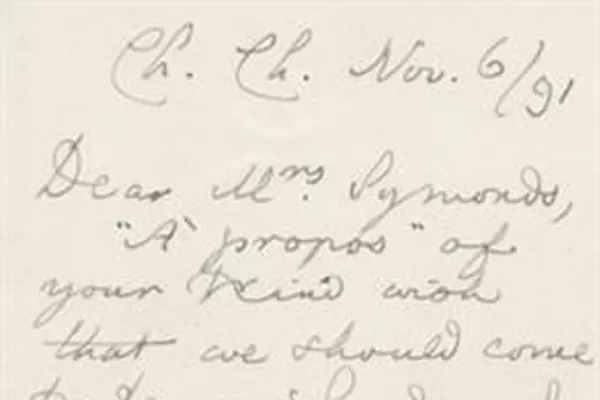 Ch. Ch. Nov. 6/91
Dear Mrs. Symonds,
"À propos" of
your kind wish
that we should come